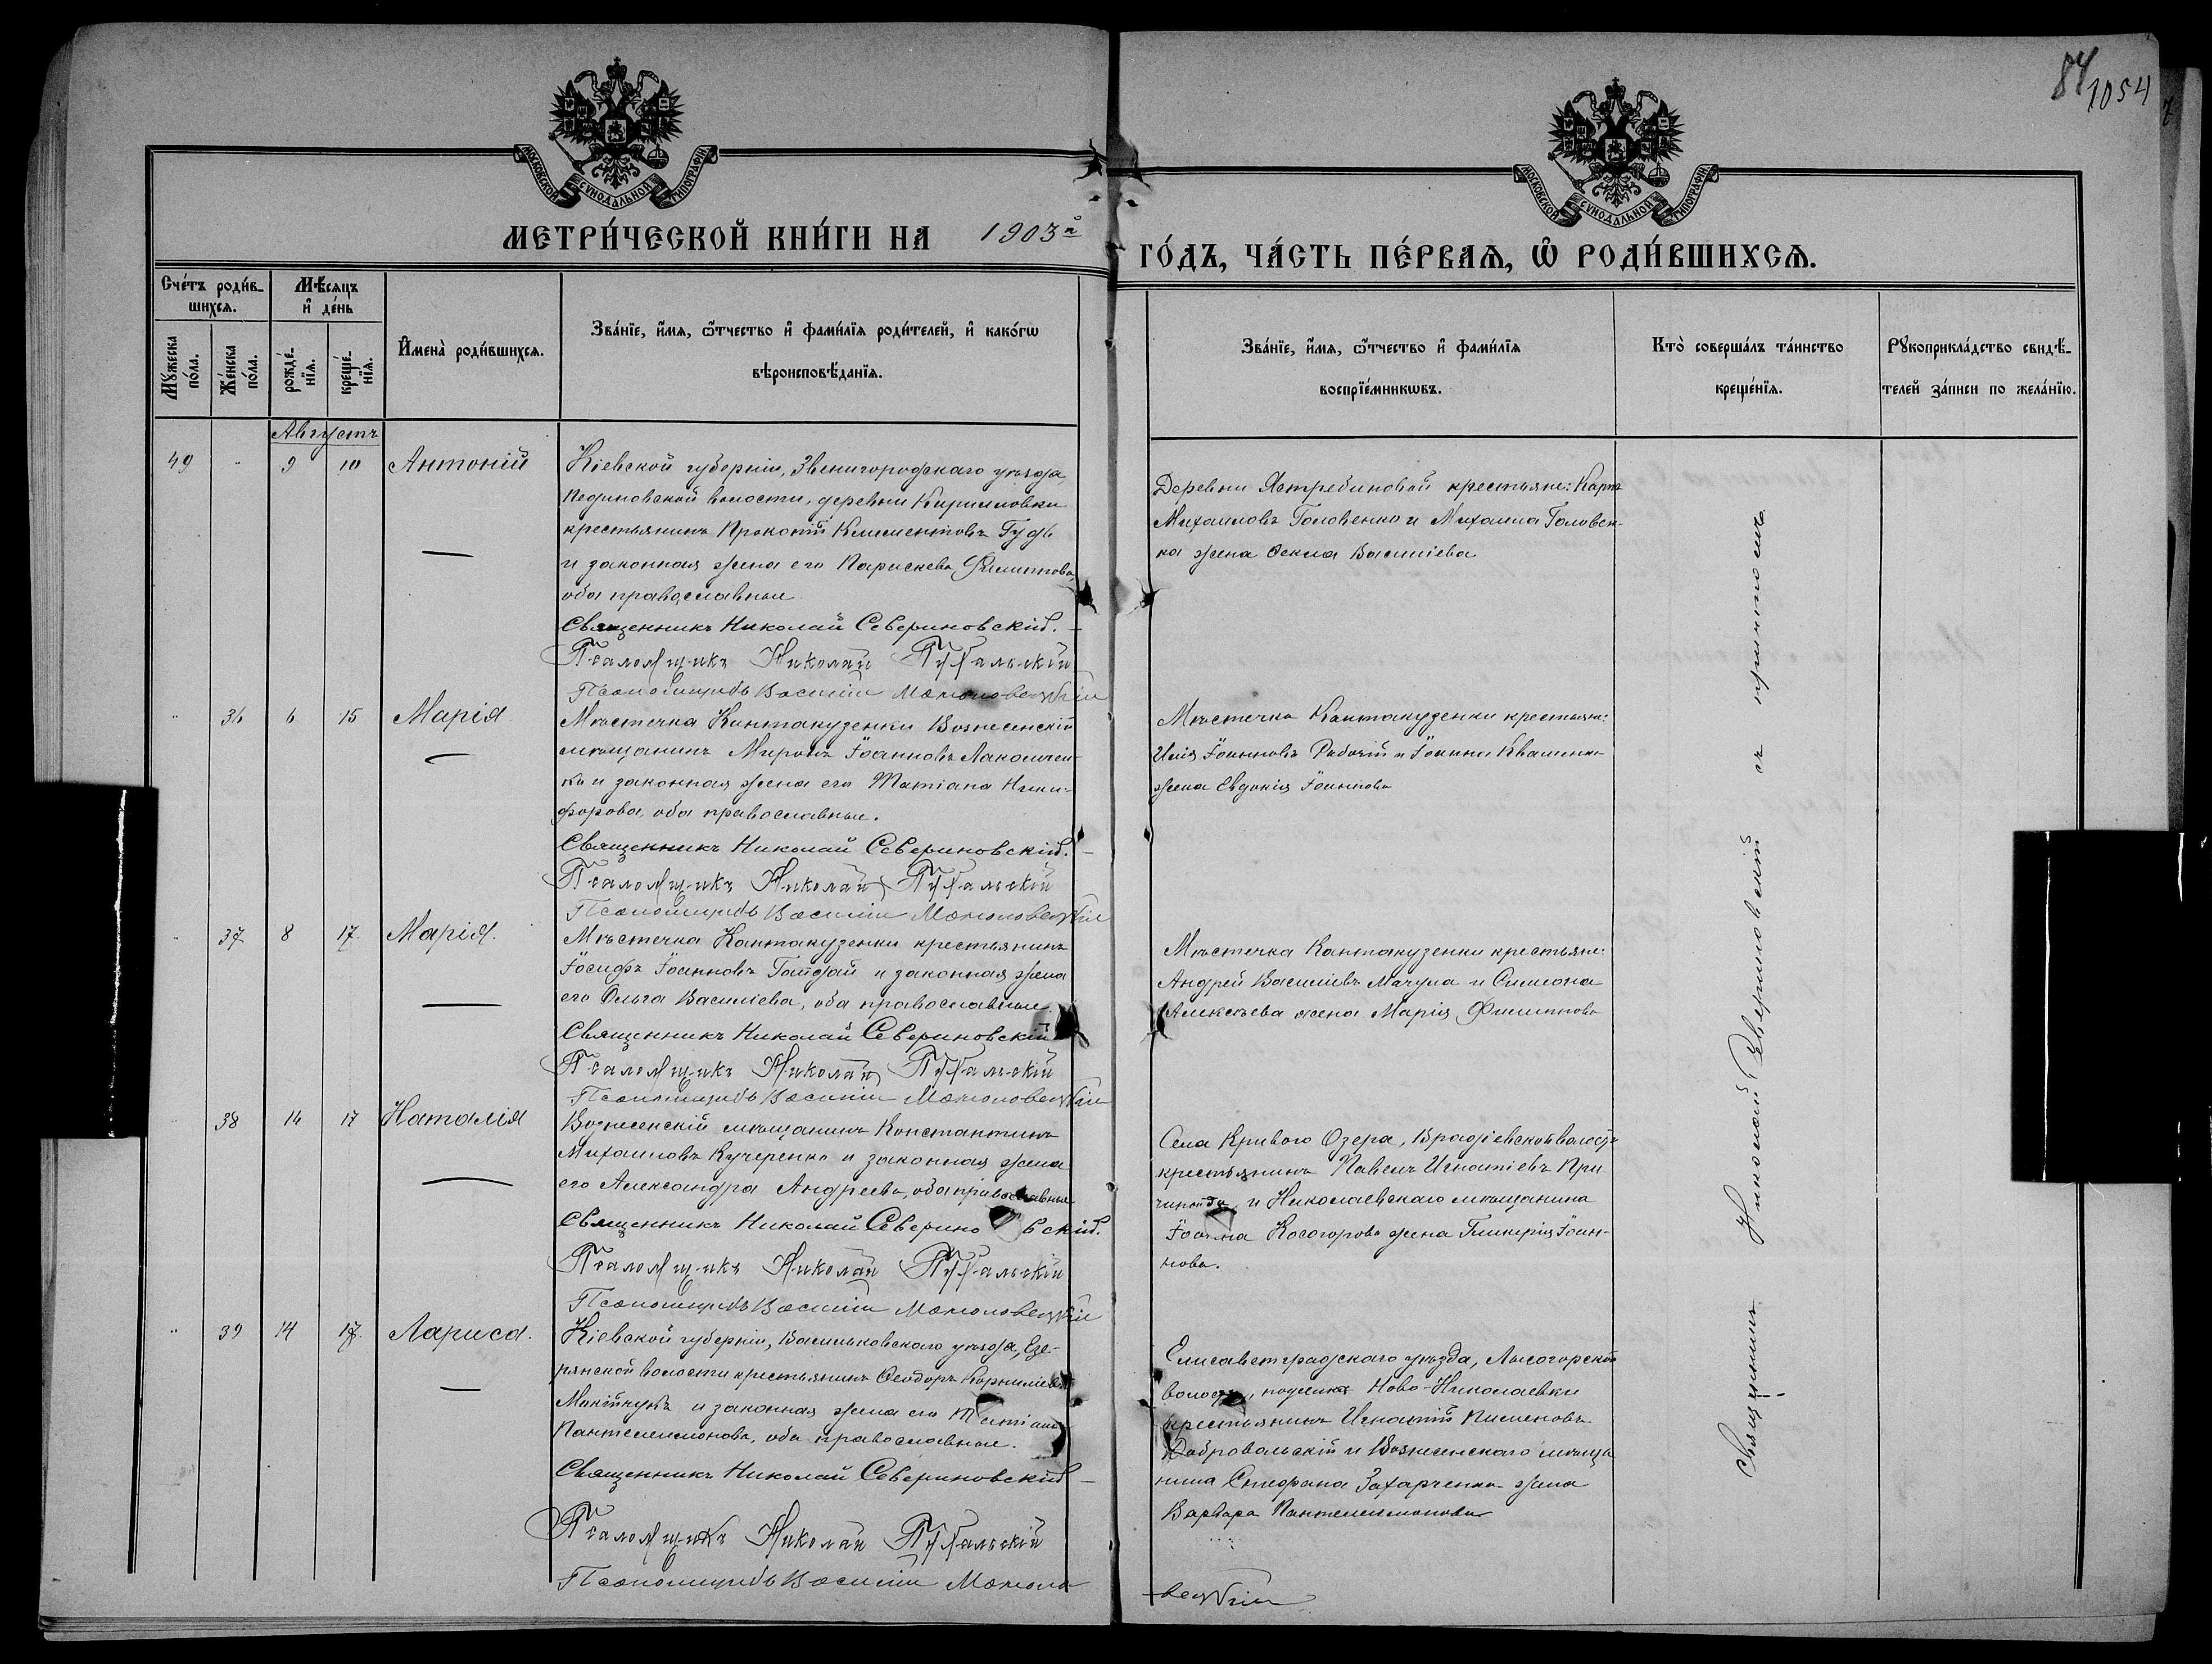 84
1054
МОСКОВСКОЙ СУНОДАЛЬНОЙ ТИПОГРАФІИ
МОСКОВСКОЙ СУНОДАЛЬНОЙ ТИПОГРАФІИ
МЕТРИ́ЧЕСКОЙ КНИ́ГИ НА 1903й
ГО́ДЪ, ЧА́СТЬ ПЕ́РВАѦ, Ѡ҆ РОДИ́ВШИХСѦ.
Сче́тъ роди́в-
шихсѧ.
Мѣ́сѧцъ
и҆ де́нь
Мꙋ́жеска по́ла.
Же́нска по́ла.
рожде́-нїѧ.
креще́-нїѧ.
И҆мена̀ роди́вшихсѧ.
Зва́нїе, и҆́мѧ, ѻ҆́тчество и҆ фами́лїѧ роди́телей, и҆ како́гѡ
вѣроисповѣ́данїѧ.
Зва́нїе, и҆́мѧ, ѻ҆́тчество и҆ фами́лїѧ
воспрїе́мникѡвъ.
Кто̀ соверша́лъ та́инство
креще́нїѧ.
Рꙋкоприкла́дство свидѣ́-
телей за́писи по жела́нїю.
Августъ
49 " 9 10 Антоній
Кіевской губерніи, Звенигородскаго уѣзда,
Пединовской волости, деревни Кирилловки
крестьянинъ Прокопій Климентовъ Гудь
и законная жена его Параскева Филиппова,
оба православные
Священникъ Николай Севериновскій.
Псаломщикъ Николай
Псаломщикъ Василій
Деревни Ястребиновой крестьяне: Карпъ
Михаиловъ Головенко и Михаила Головен-
ка жена Ѳекла Василіева
" 36 6 15 Марія
Мѣстечка Кантакузенки Вознесенскій
мѣщанинъ Миронъ Іоанновъ
ко и законная жена его Татіана Ники-
форова, оба православные.
Священникъ Николай Севериновскій.
Псаломщикъ Николай
Псаломщикъ Василій
Мѣстечка Кантакузенки крестьяне:
Илія Іоанновъ Рабочій и Іоанна Квашенко
жена Евдокія Іоаннова
" 37 8 17 Марія.
Мѣстечка Кантакузенки крестьянинъ
Іосифъ Іоанновъ Гайдай и законная жена
его Ольга Василіева, оба православные.
Священникъ Николай Севериновскій
Псаломщикъ Николай
Псаломщикъ Василій
Мѣстечка Кантакузенки крестьяне:
Андрей Василіевъ Мачула и Симеона
Алексѣева жена Марія Филиппова
" 38 14 17 Наталія
Вознесенскій мѣщанинъ Константинъ
Михаиловъ Кучеренко и законная жена
его Александра Андреева, оба православные
Священникъ Николай Севериновскій.
Псаломщикъ Николай
Псаломщикъ Василій
Села Криваго Озера, Врадіевской волости
крестьянинъ Павелъ Игнатіевъ
и Николаевскаго мѣщанина
Іоанна Косогорова жена Гликерія Іоан-
нова.
" 39 14 17. Лариса.
Кіевской губерніи, Васильковскаго уѣзда, Езе-
рянской волости крестьянинъ Ѳеодоръ Корниліевъ
и законная жена его Татіана
Пантелеимонова, оба православные.
Священникъ Николай Севериновскій
Псаломщикъ Николай
Псаломщикъ Василій
Елисаветградскаго уѣзда, Лысогорской
волости, поселка Ново-Николаевки
крестьянинъ Игнатій Пименовъ
Добровольскій и Вознесенскаго мѣща
нина Стефана Захарченка жена
Варвара Пантелеимонова
Священникъ Николай Севериновскій съ причтомъ